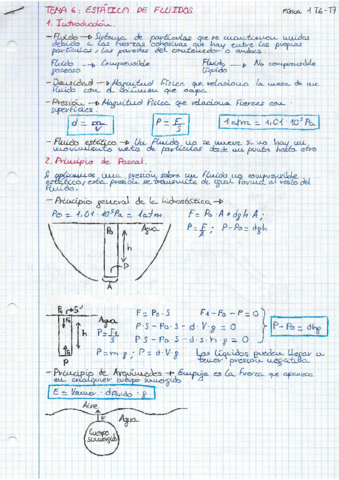 TEMA 6: ESTÁTICA DE FLUIDOS
Física 1 T6-T7
1. Introducción.
- Fluido → Sistema de partículas que se mantienen unidas
debido a las fuerzas cohesivas que hay entre las propias
partículas, las paredes del contenedor o ambas
Fluido gaseoso → Comprensible
Fluido líquido → No comprensible
- Densidad → Magnitud Física que relaciona la masa de un
fluido con el volumen que ocupa
- Presión → Magnitud Física que relaciona Fuerzas con
superficies.
d = m/V
P = F/S
1 atm = 1.01·10⁵ Pa
- Fluido estático → Un fluido no se mueve, si no hay un
movimiento neto de partículas desde un punto hasta otro
2. Principio de Pascal.
Si aplicamos una presión sobre un fluido no comprensible
estático, esta presión se transmite de igual forma al resto del
fluido.
- Principio general de la hidrostática →
P0 = 1.01·10⁵ Pa = 1 atm
F = P0 A + dgh A;
P0
Agua
P = F/A; P - P0 = dgh
h
P
A
P0 → S
F = P0·S
F1 - F0 - P = 0
Agua
h
P·S - P0·S - d·V·g = 0
P - P0 = dhg
P·S - P0·S - d·S·h·g = 0
P = m·g; P = d·V·g
Los líquidos pueden llegar a
tener presión negativa
P
- Principio de Arquímedes → Empuje es la fuerza que aparece
en cualquier cuerpo sumergido
E = · dfluido · g
Aire
E
Agua
Cuerpo
sumergido